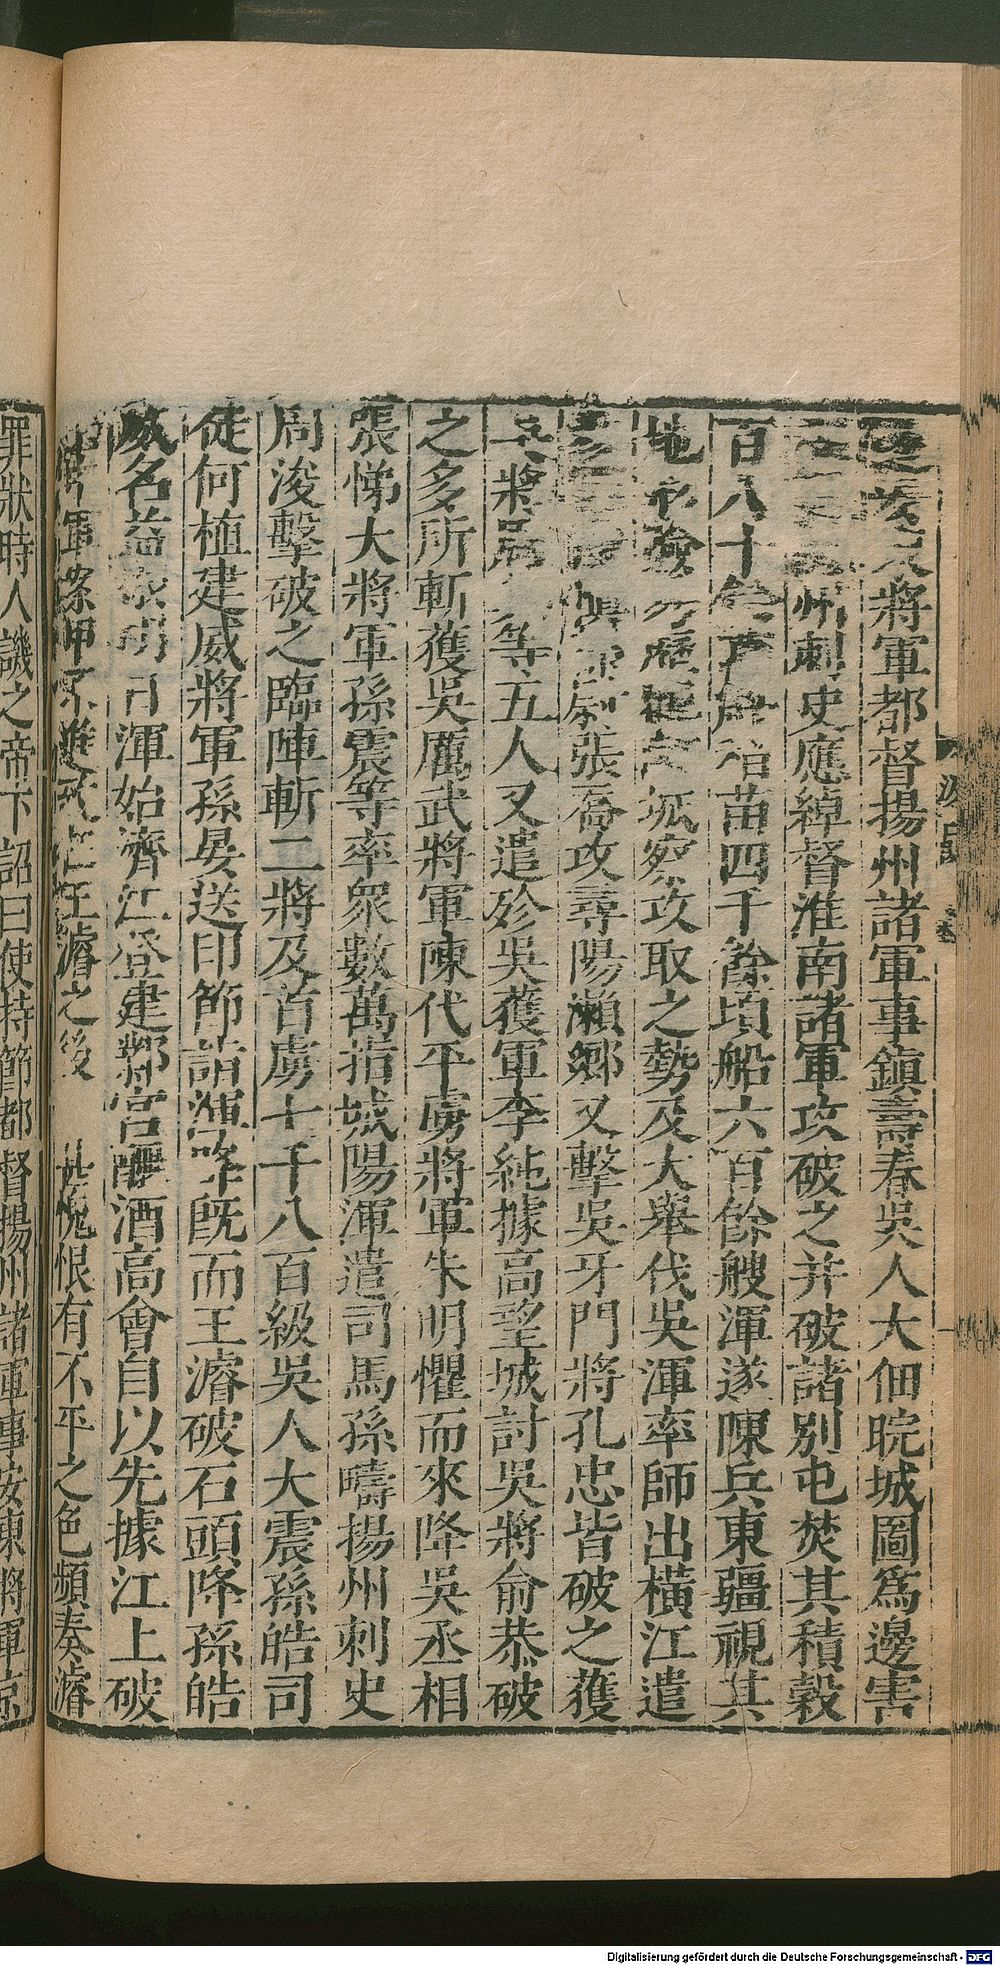 將軍都督揚州諸軍事鎮壽春吳人大佃晥城圖爲邊害
州刺史應綽督淮南諸軍攻破之并破諸別屯焚其積穀
百八十苗四千餘頃船六百餘艘渾遂陳兵東疆視其
地險攻取之勢及大舉伐吳渾率師出橫江遣
張喬攻尋陽瀨鄉又擊吳牙門將孔忠皆破之獲
吳將等五人又遣殄吳護軍李純據高望城討吳將俞恭破
之多所斬獲吳厲武將軍陳代平虜將軍朱明懼而來降吳丞相
張悌大將軍孫震等率衆數萬指城陽渾遣司馬孫疇揚州刺史
周浚擊破之臨陣斬二將及首虜七千八百級吳人大震孫皓司
徒何植建威將軍孫晏送印節詣渾降既而王濬破石頭降孫皓
威名益明日渾始濟江登建鄴宮釃酒高會自以先據江上破
軍案甲不進致在王濬之後 甚愧恨有不平之色頻奏濬
罪狀時人譏之帝下詔曰使持節都督揚州諸軍事安東將軍京
Digitalisierung gefördert durch die Deutsche Forschungsgemeinschaft - DFG